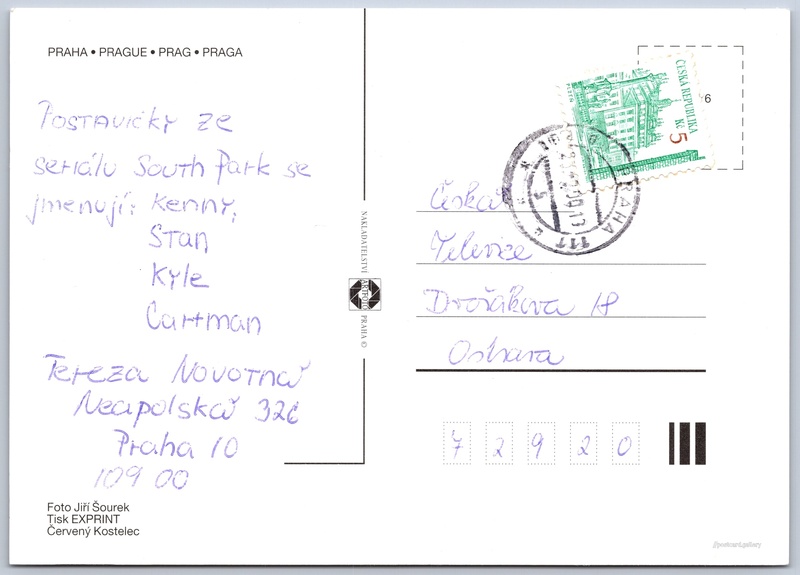 PRAHA • PRAGUE • PRAG • PRAGA
Postavičky ze
seriálu South Park se
jmenují: Kenny,
Stan
Kyle
Cartman
Tereza Novotná
Neapolská 32c
Praha 10
109 00
Foto Jiří Šourek
Tisk EXPRINT
Červený Kostelec
NAKLADATELSTVÍ ARTFOTO PRAHA ©
ČESKÁ REPUBLIKA
Kč 5
6
PRAHA 111
Česká
Televize
Dvořákova 18
Ostrava
7 2 9 2 0
postcard.gallery